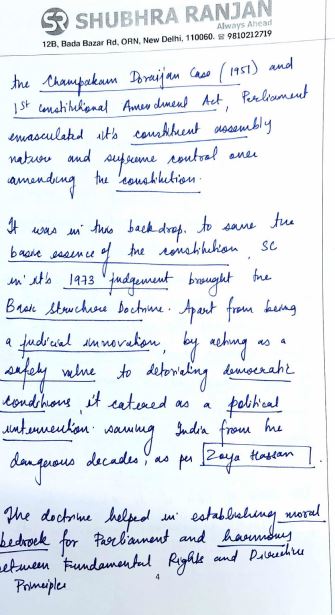 SR SHUBHRA RANJAN
Always Ahead
12B, Bada Bazar Rd, ORN, New Delhi, 110060. ☎ 9810212719
the Champakam Doraijan Case (1951) and
1st constitutional Amendment Act, Parliament
emasculated it's constituent assembly
nature and supreme control over
amending the constitution.
It was in this backdrop, to save the
basic essence of the constitution, SC
in it's 1973 judgement brought the
Basic Structure Doctrine. Apart from being
a judicial innovation, by acting as a
safety valve to detoriating democratic
conditions, it catered as a political
intervention saving India from the
dangerous decades, as per Zoya Hassan.
The doctrine helped in establishing moral
bedrock for Parliament and harmony
between Fundamental Rights and Directive
Principles
4